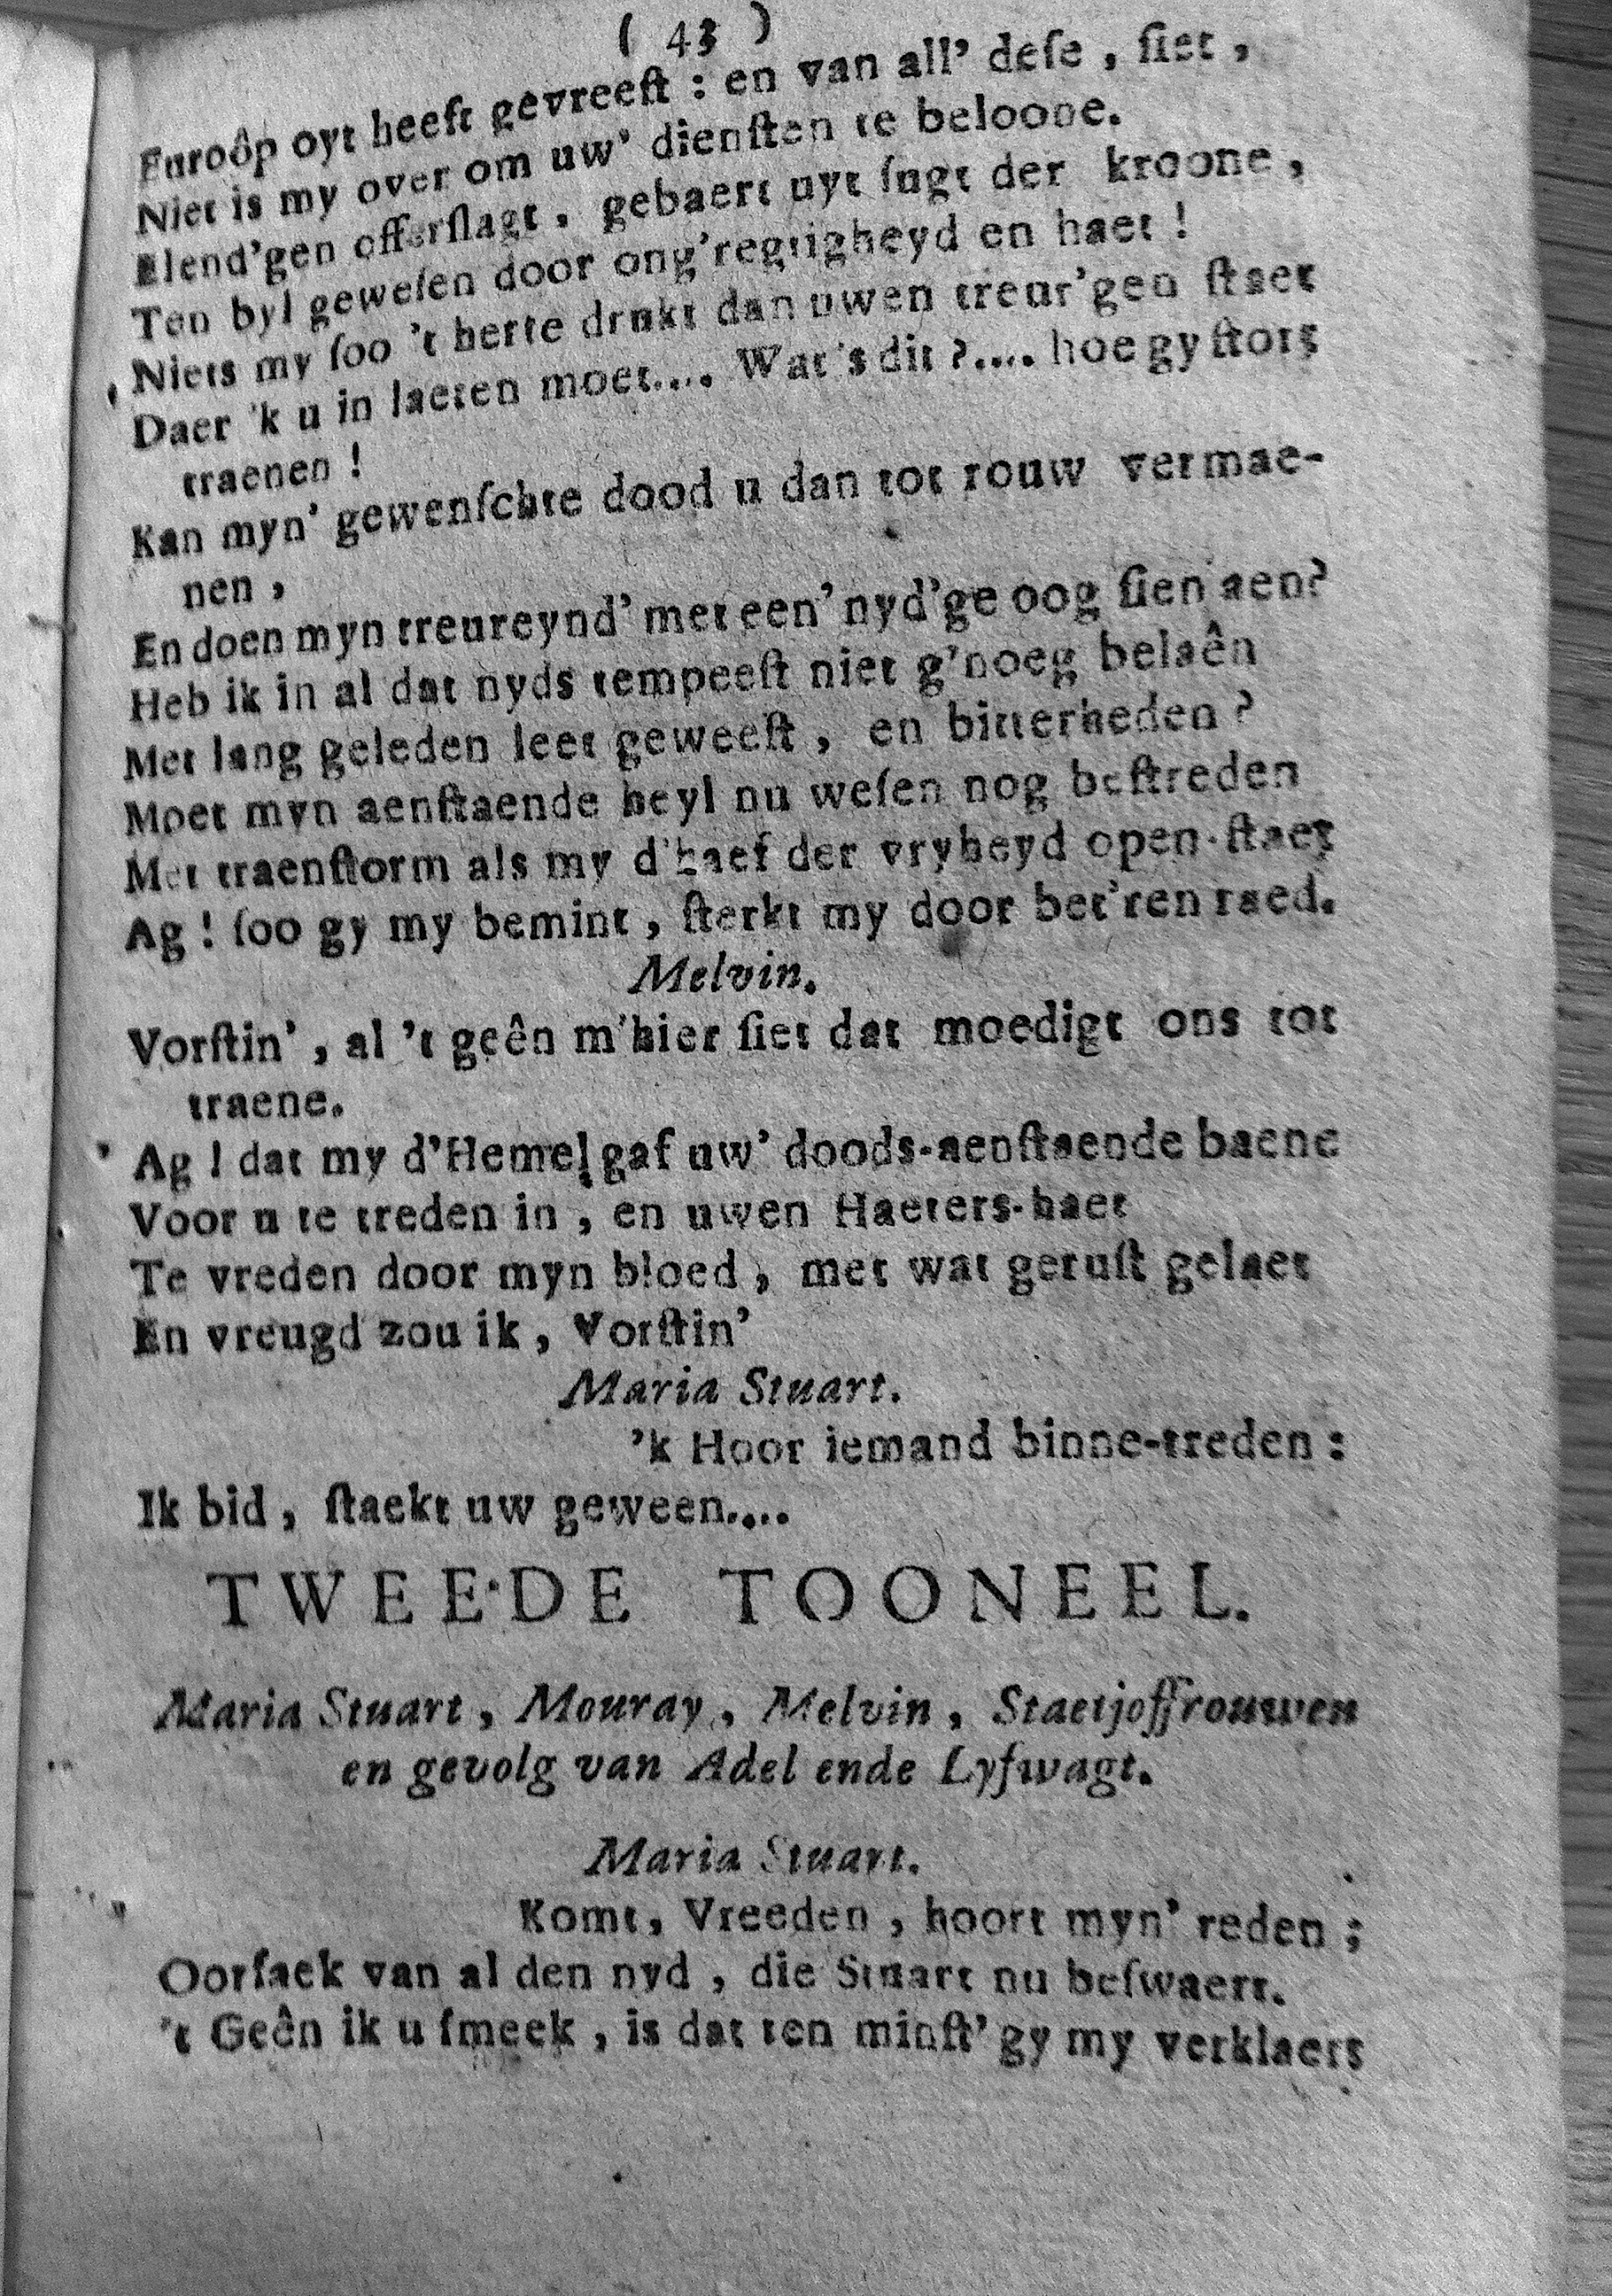 ( 43 )
Eurôop oyt heeft gevreeſt : en van all' deſe , ſiet ,
Niet is my over om uw' dienſten te beloone.
Elend'gen offerſlagt , gebaert uyt ſugt der kroone ,
Ten byl geweſen door ong'regtigheyd en haet !
Niets my ſoo 't herte drukt dan uwen treur'gen ſtaet
Daer 'k u in laeten moet.... Wat 's dit ?.... hoe gy ſtort
traenen !
Kan myn' gewenſchte dood u dan tot rouw vermae-
nen ,
En doen myn treureynd' met een' nyd'ge oog ſien aen?
Heb ik in al dat nyds tempeeſt niet g'noeg belaên
Met lang geleden leet geweeſt , en bitterheden ?
Moet myn aenſtaende heyl nu weſen nog beſtreden
Met traenſtorm als my d'haef der vryheyd open-ſtaet
Ag ! ſoo gy my bemint , ſterkt my door bet'ren raed.
Melvin.
Vorſtin' , al 't geên m'hier ſiet dat moedigt ons tot
traene.
Ag ! dat my d'Hemel gaf uw' doods-aenſtaende baene
Voor u te treden in , en uwen Haeters-haet
Te vreden door myn bloed , met wat geruſt gelaet
En vreugd zou ik , Vorſtin'
Maria Stuart.
'k Hoor iemand binne-treden :
Ik bid , ſtaekt uw geween....
TWEEDE TOONEEL.
Maria Stuart , Mouray , Melvin , Staetjoffrouwen
en gevolg van Adel ende Lyfwagt.
Maria Stuart.
Komt, Vreeden , hoort myn' reden ;
Oorſaek van al den nyd , die Stuart nu beſwaert.
't Geên ik u ſmeek , is dat ten minſt' gy my verklaert